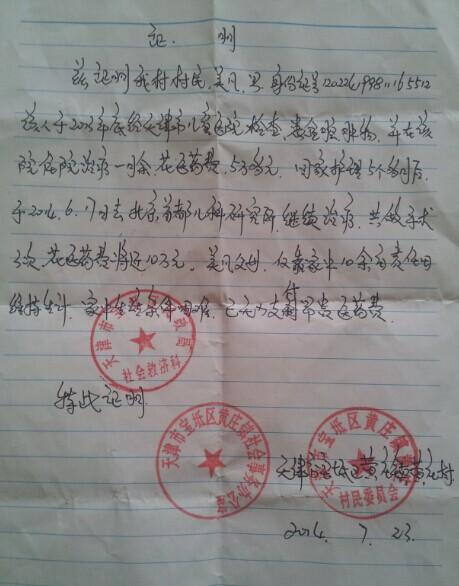 证 明
兹证明我村村民,姜凡,男 身份证号
该人于2013年底经天津市儿童医院检查,患 肿物,并在该
院住院治疗一月余,花医药费,5万多元,回家护理5个多月后,
于2014.6.17日去北京首都儿科研究所,继续治疗,共做手术
3次,花医药费将近10万元,姜凡父母,仅靠家中10余亩责任田
维持生计,家中生活条件困难,已无力支付昂贵医药费.
特此证明
天津市宝坻区黄庄镇 村
2014. 7. 23.
天津市 局
社会救济科
天津市宝坻区黄庄镇社会事务办公室
天津市宝坻区黄庄镇
村民委员会